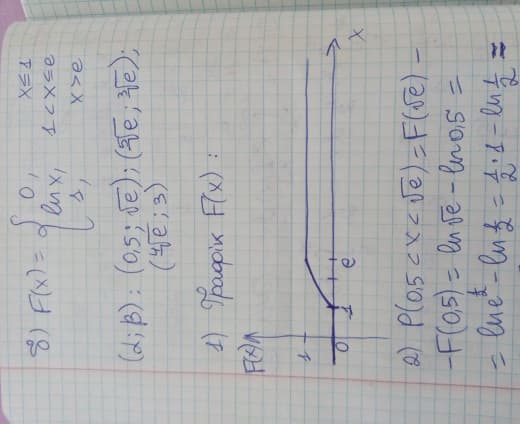 8) F(x) = { 0, x ≤ 1
ln x, 1 < x ≤ e
1, x > e
(α; β): (0,5; √e); (∛e; ∛e);
(∜e; 3)
1) Графік F(x):
F(x)
1
0 1 e x
2) P(0,5 < x < √e) = F(√e) -
- F(0,5) = ln √e - ln 0,5 =
= ln e^½ - ln ½ = ½ · 1 - ln ½ =